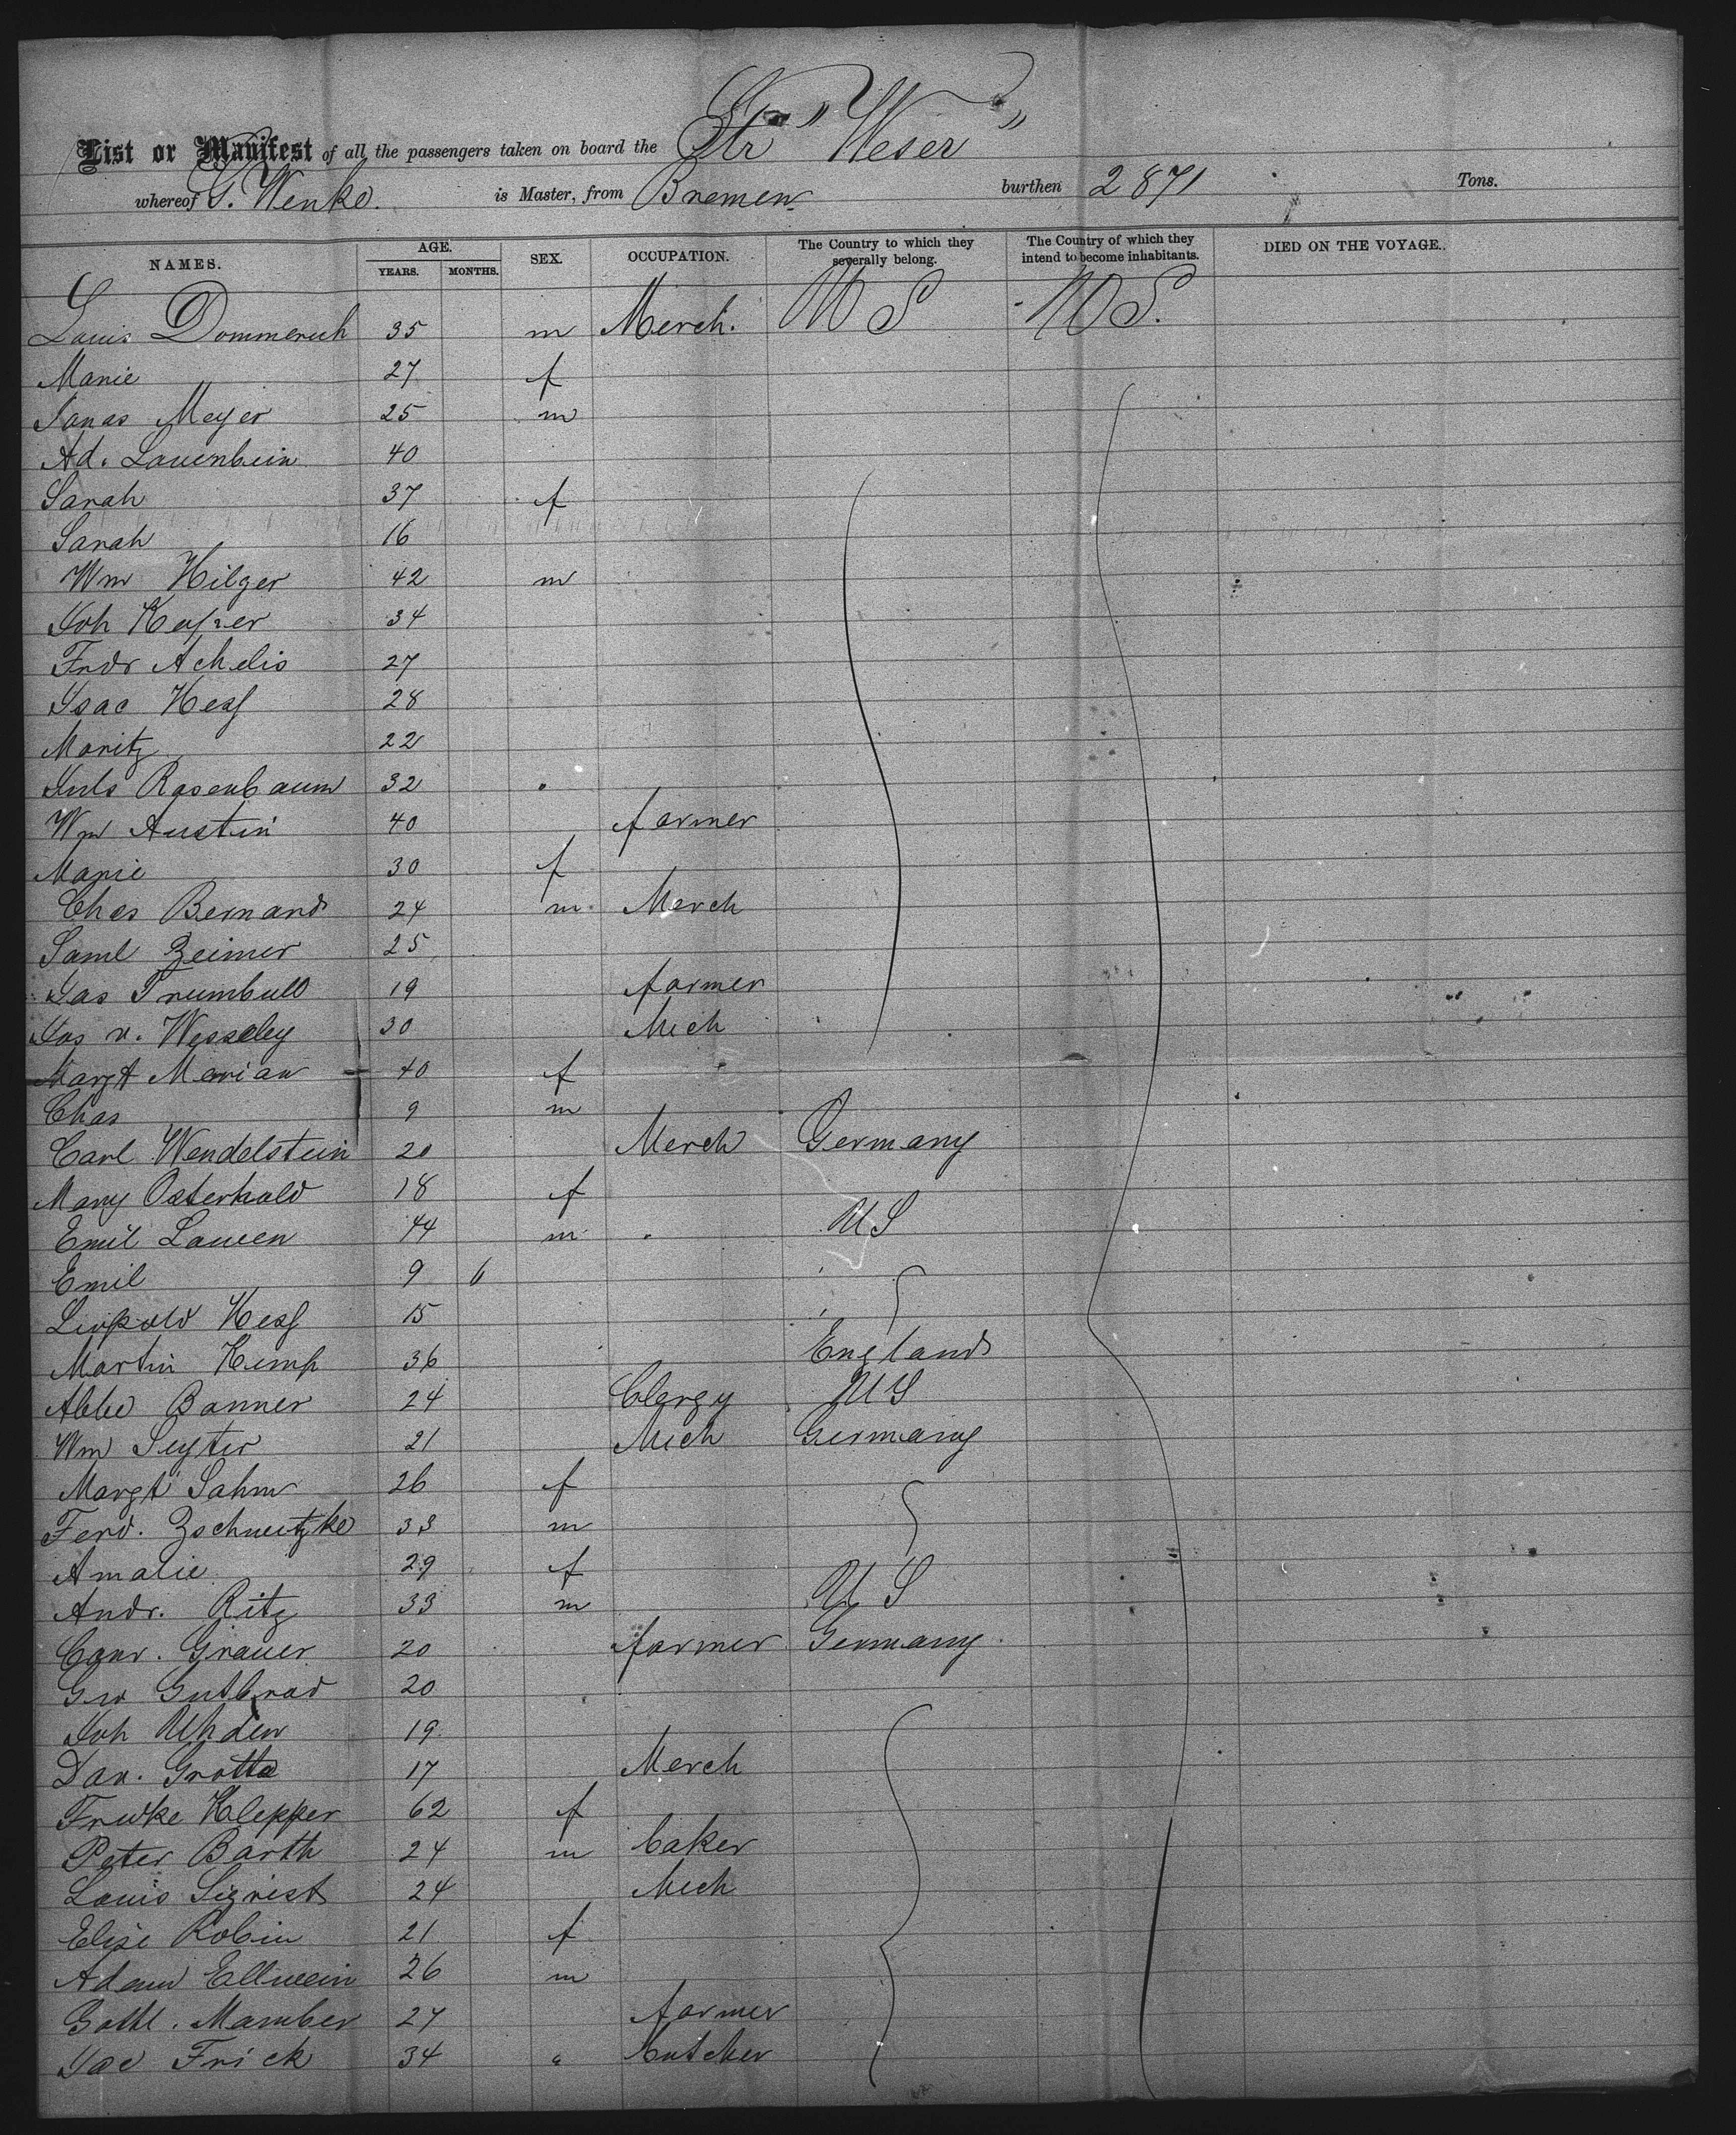 List or Manifest of all the passengers taken on board the Str "Weser"
whereof G. Wenke. is Master, from Bremen burthen 2871 Tons.
NAMES. AGE. YEARS. MONTHS. SEX. OCCUPATION. The Country to which they severally belong. The Country of which they intend to become inhabitants. DIED ON THE VOYAGE.
Louis Dommerich 35 m Merch. U S U S.
Marie 27 f
Jonas Meyer 25 m
Ad. Lauenbein 40
Sarah 37 f
Sarah 16
Wm Hilger 42 m
Joh Kayser 34
Fridr Achelis 27
Isac Hess 28
Moritz 22
Juls Rosenbaum 32 "
Wm Austin 40 farmer
Marie 30 f
Chas Bernard 24 m Merch
Saml Zeimer 25
Jas Trumbull 19 farmer
Jos v. Wesseley 30 Mech
Margt Marian 40 f
Chas 9 m
Carl Wendelstein 20 Merch Germany
Mary Osterhold 18 f
Emil Lauen 44 m " U S
Emil 9 6
Leopold Hess 15
Martin Kemp 36 England
Banner 24 Clergy U S
Wm Seyter 21 Mech Germany
Margt Sahm 26 f
Ferd. Zschuetzke 33 m
Amalie 29 f
Andr. Ritz 33 m U S
Conr. Grauer 20 farmer Germany
Geo Gutbrod 20
Joh Uhden 19
Dav. Grotta 17 Merch
Frieke Klepper 62 f
Peter Barth 24 m baker
Louis Sigrist 24 Mech
Elise Robin 21 f
Adam Ellwein 26 m
Gottl. Mamber 27 farmer
Jac Frick 34 " butcher